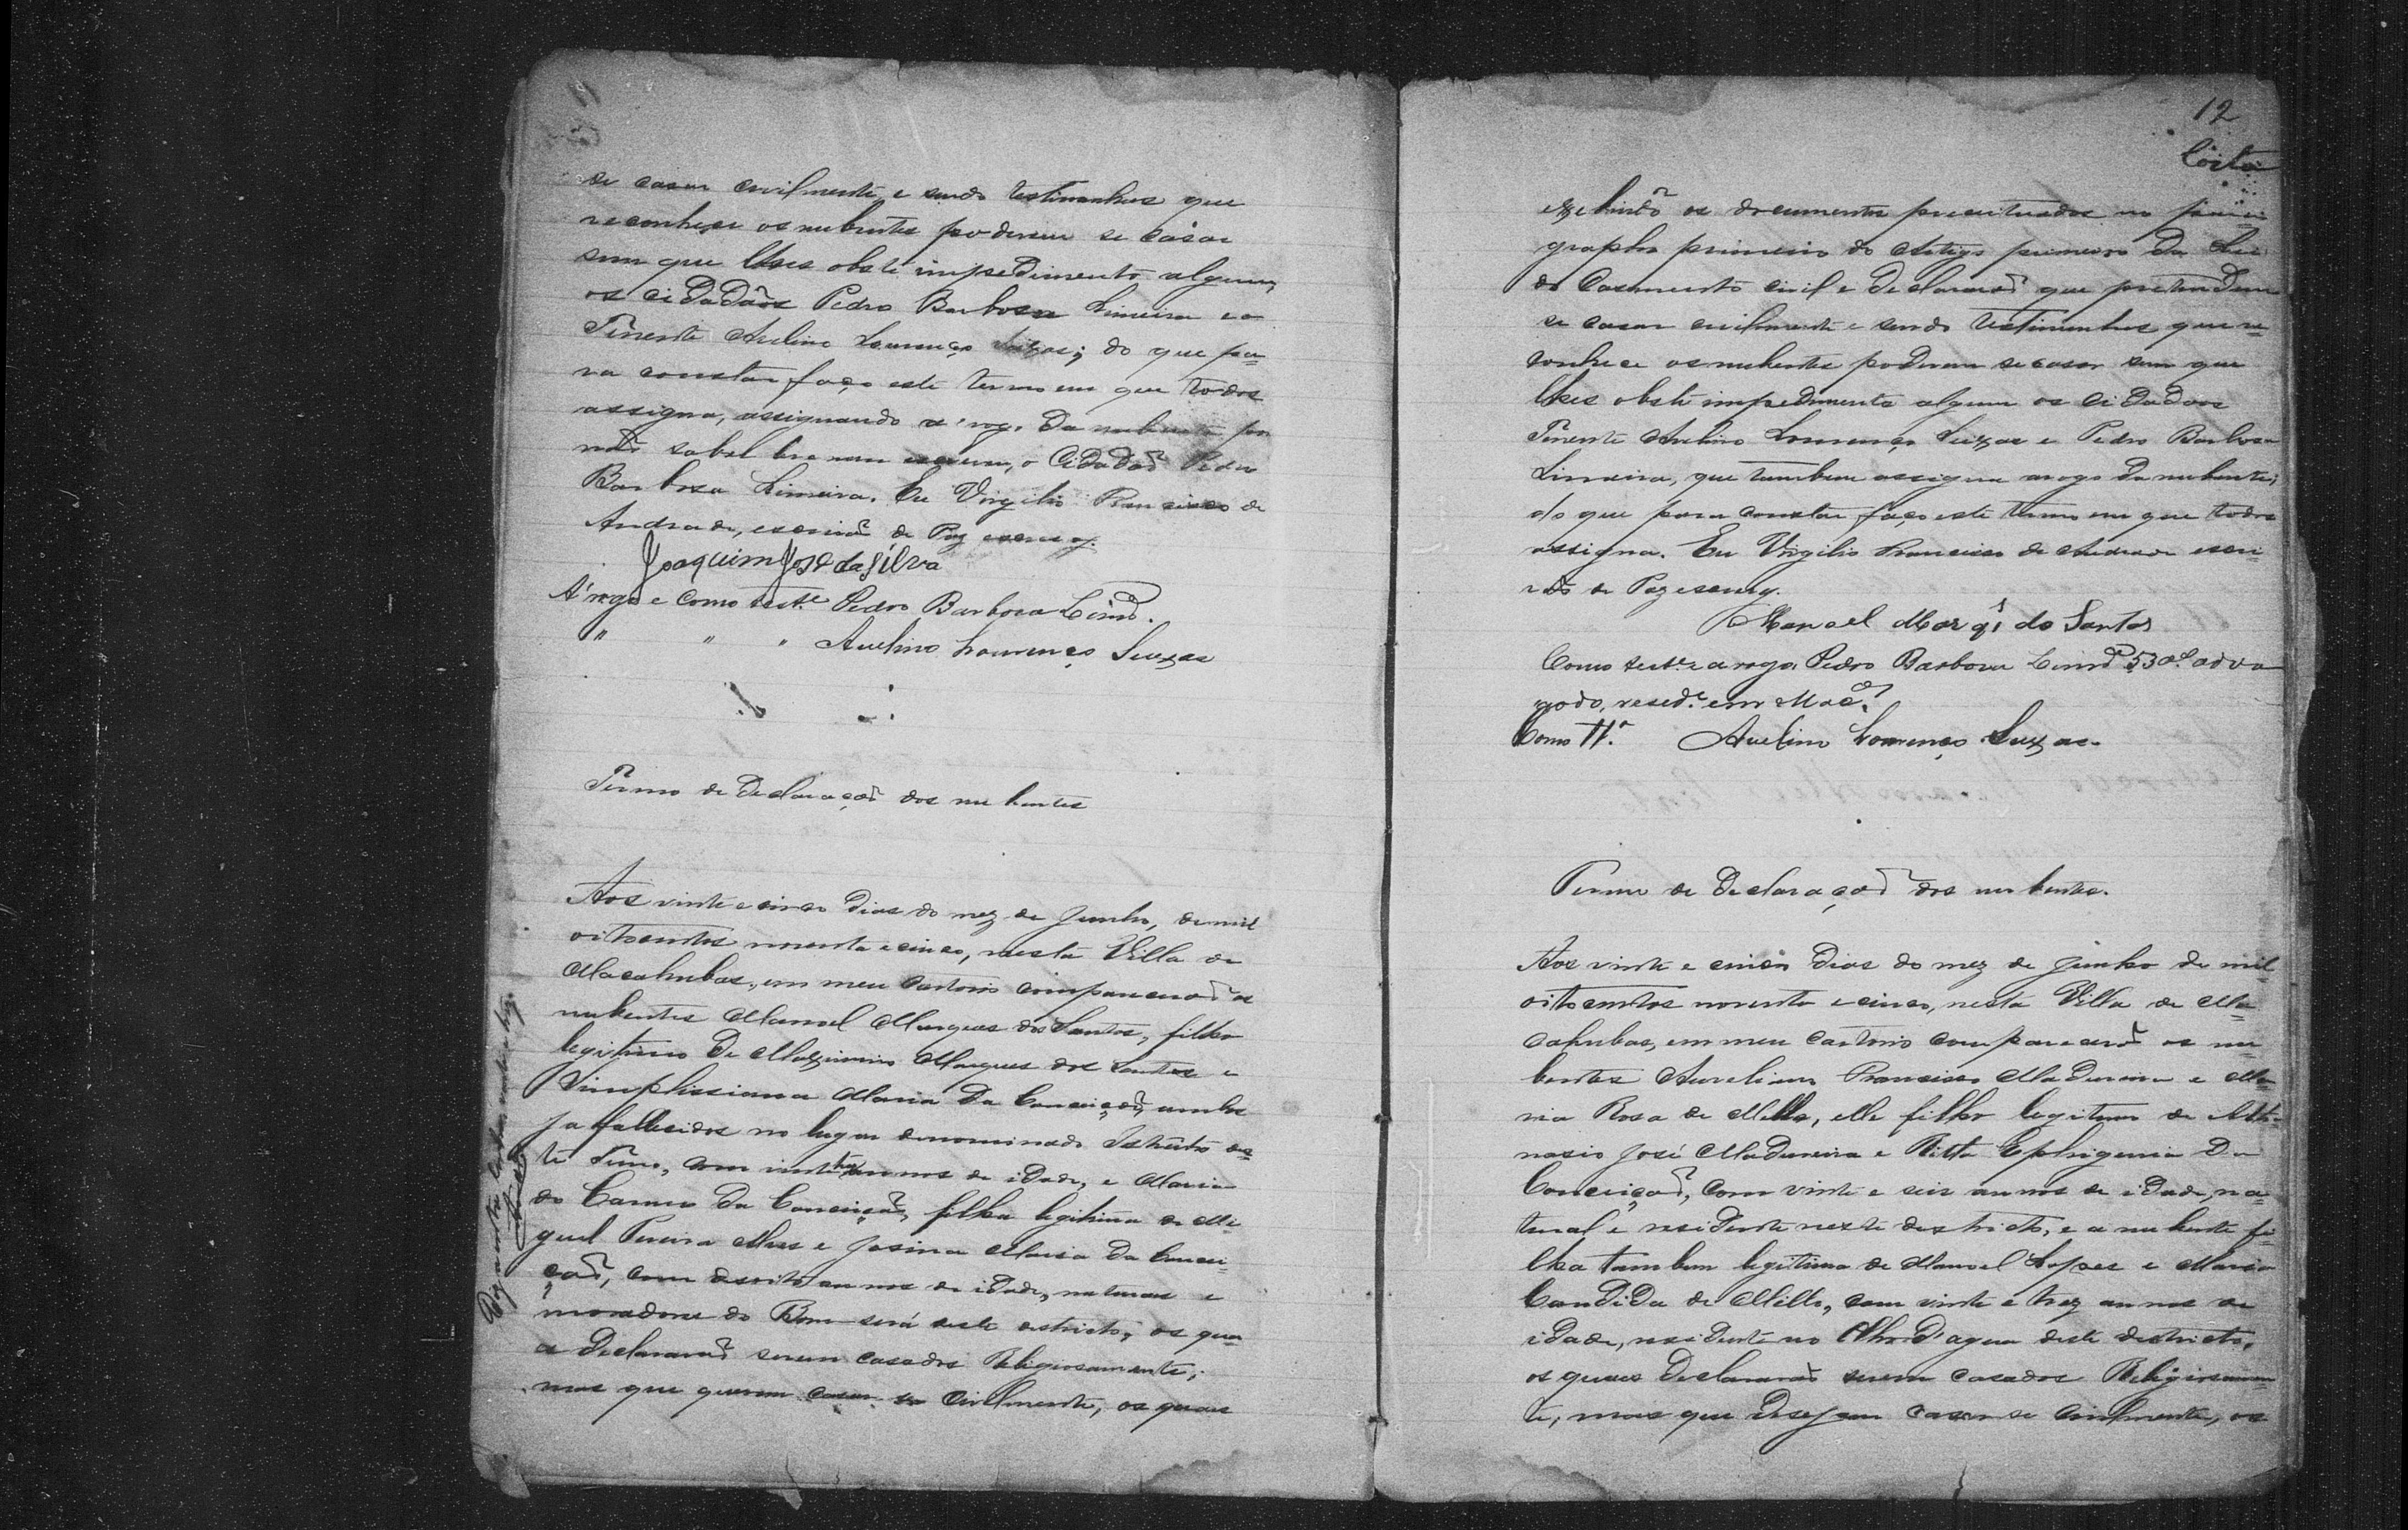 se casar civilmente e sendo testimunhas que
reconhece os nubentes poderem se casar
sem que lhes obste impedimento algum,
os cidadãos Pedro Barbosa Limeira e o
Tenente Avelino Lourenço Seixas; do que pa-
ra constar faço este termo em que todos
assigna, assignando a rogo da nubente por
não saber ler nem escrever, o Cidadão Pedro
Barbosa Limeira. Eu Virgilio Francisco de
Andrade, escrivão de Paz escrevy.
Joaquim José da Silva
A rogo e como test.e Pedro Barbosa Limr.a
" " " Avelino Lourenço Seixas
Termo de Declaração dos nubentes
Aos vinte e cinco dias do mez de Junho, de mil
oitocentos noventa e cinco, nesta Villa de
Macahubas, em meu Cartorio comparecerão os
nubentes Manoel Marques dos Santos, filho
legitimo de Maximino Marques dos Santos e
Simplissiana Maria da Conceição, ambos
ja fallecidos no lugar denominado des-
te Termo, com vinte annos de idade, e Maria
do Carmo da Conceição, filha legitima de Mi-
guel Pereira Alves e Josina Maria da Concei-
ção, com desoito annos de idade, naturaes e
moradores do Bom será deste destricto, os qua-
es Declararão serem casados Religiosamente,
mas que querem casar se Civilmente, os quaes
12
Costa
exhibirão os documentos preceituados no para-
grapho primeiro do Artigo primeiro da Lei
do Casamento civil e Declararão que pretendem
se casar civilmente e sendo testimunhas que re-
conhece os nubentes poderem se casar sem que
lhes obste impedimento algum os Cidadãos
Tenente Avelino Lourenço Seixas e Pedro Barbosa
Limeira, que tambem assigna a rogo da nubente;
do que para constar faço este termo em que todos
assigna. Eu Virgilio Francisco de Andrade escri-
vão de Paz escrevy.
Manoel Marqs do Santos
Como test.e e a rogo Pedro Barbosa Limr.a 53 a.s adva
gado, resid.e em Mac.as
Como T.a Avelino Lourenço Seixas.
Termo de Declaração dos nubentes.
Aos vinte e cinco dias do mez de junho de mil
oitocentos noventa e cinco, nesta Villa de Ma-
cahubas, em meu cartorio comparecerão os nu-
bentes Aureliano Francisco Madureira e Ma-
ria Rosa de Mello, elle filho legitimo de Atha-
nasio José Madureira e Ritta Ephigenia da
Conceição, com vinte e seis annos de idade, na-
tural e residente neste destricto, e a nubente fi-
lha tambem legitima de Manoel Lopes e Maria
Candida de Mello, com vinte e trez annos de
idade, residente no Olho d'agua deste destricto,
os quaes Declararão serem casados Religiosamen-
te, mas que desejam casar se Civilmente, os